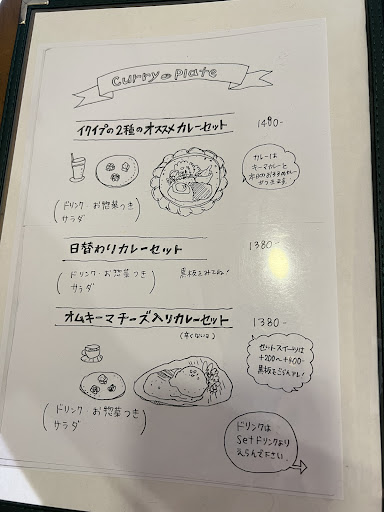 Curry の Plate
イクイプの2種のオススメカレーセット 1480-
カレーは
キーマカレーと
本日のおすすめカレー
(ドリンク・お惣菜つき
サラダ)
日替わりカレーセット 1380-
(ドリンク・お惣菜つき
サラダ) 黒板をみてね!
オムキーマチーズ入りカレーセット 1380-
(辛くないよ)
セットスイーツは
+200〜+400-
黒板をごらん下さい!
(ドリンク・お惣菜つき
サラダ)
ドリンクは
Setドリンクより
えらんで下さい。